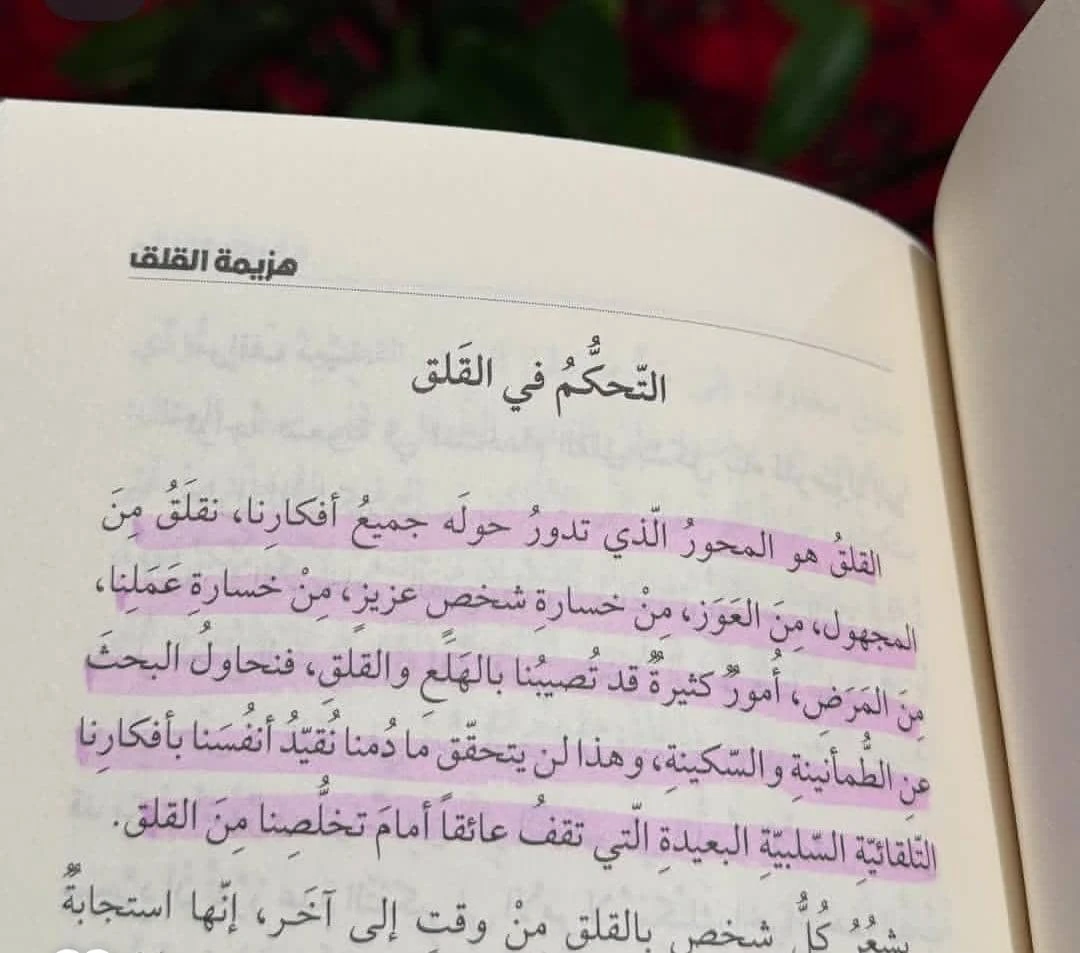 هزيمة القلق
التّحكُّمُ في القَلق
القلقُ هو المحورُ الّذي تدورُ حولَه جميعُ أفكارِنا، نقلَقُ مِنَ
المجهول، مِنَ العَوَز، مِنْ خسارةِ شخصٍ عزيزٍ، مِنْ خسارةِ عَمَلِنا،
مِنَ المَرَضِ، أُمورٌ كثيرةٌ قد تُصيبُنا بالهَلَعِ والقلقِ، فنحاولُ البحثَ
عنِ الطُّمأنينةِ والسّكينةِ، وهذا لن يتحقّق ما دُمنا نُقيّدُ أنفُسَنا بأفكارِنا
التّلقائيّةِ السّلبيّةِ البعيدةِ الّتي تقفُ عائقاً أمامَ تخلُّصِنا مِنَ القلق.
يشعُرُ كُلُّ شخصٍ بالقلق مِنْ وقتٍ إلى آخَر، إنّها استجابةٌ